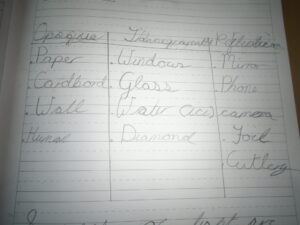 Opaque Transparent Reflection
.Paper .Windows Mirro
.Cardbord .Glass Phone
.Wall .Water (ice) camera
Human .Diamond .Foil
.Cutlery